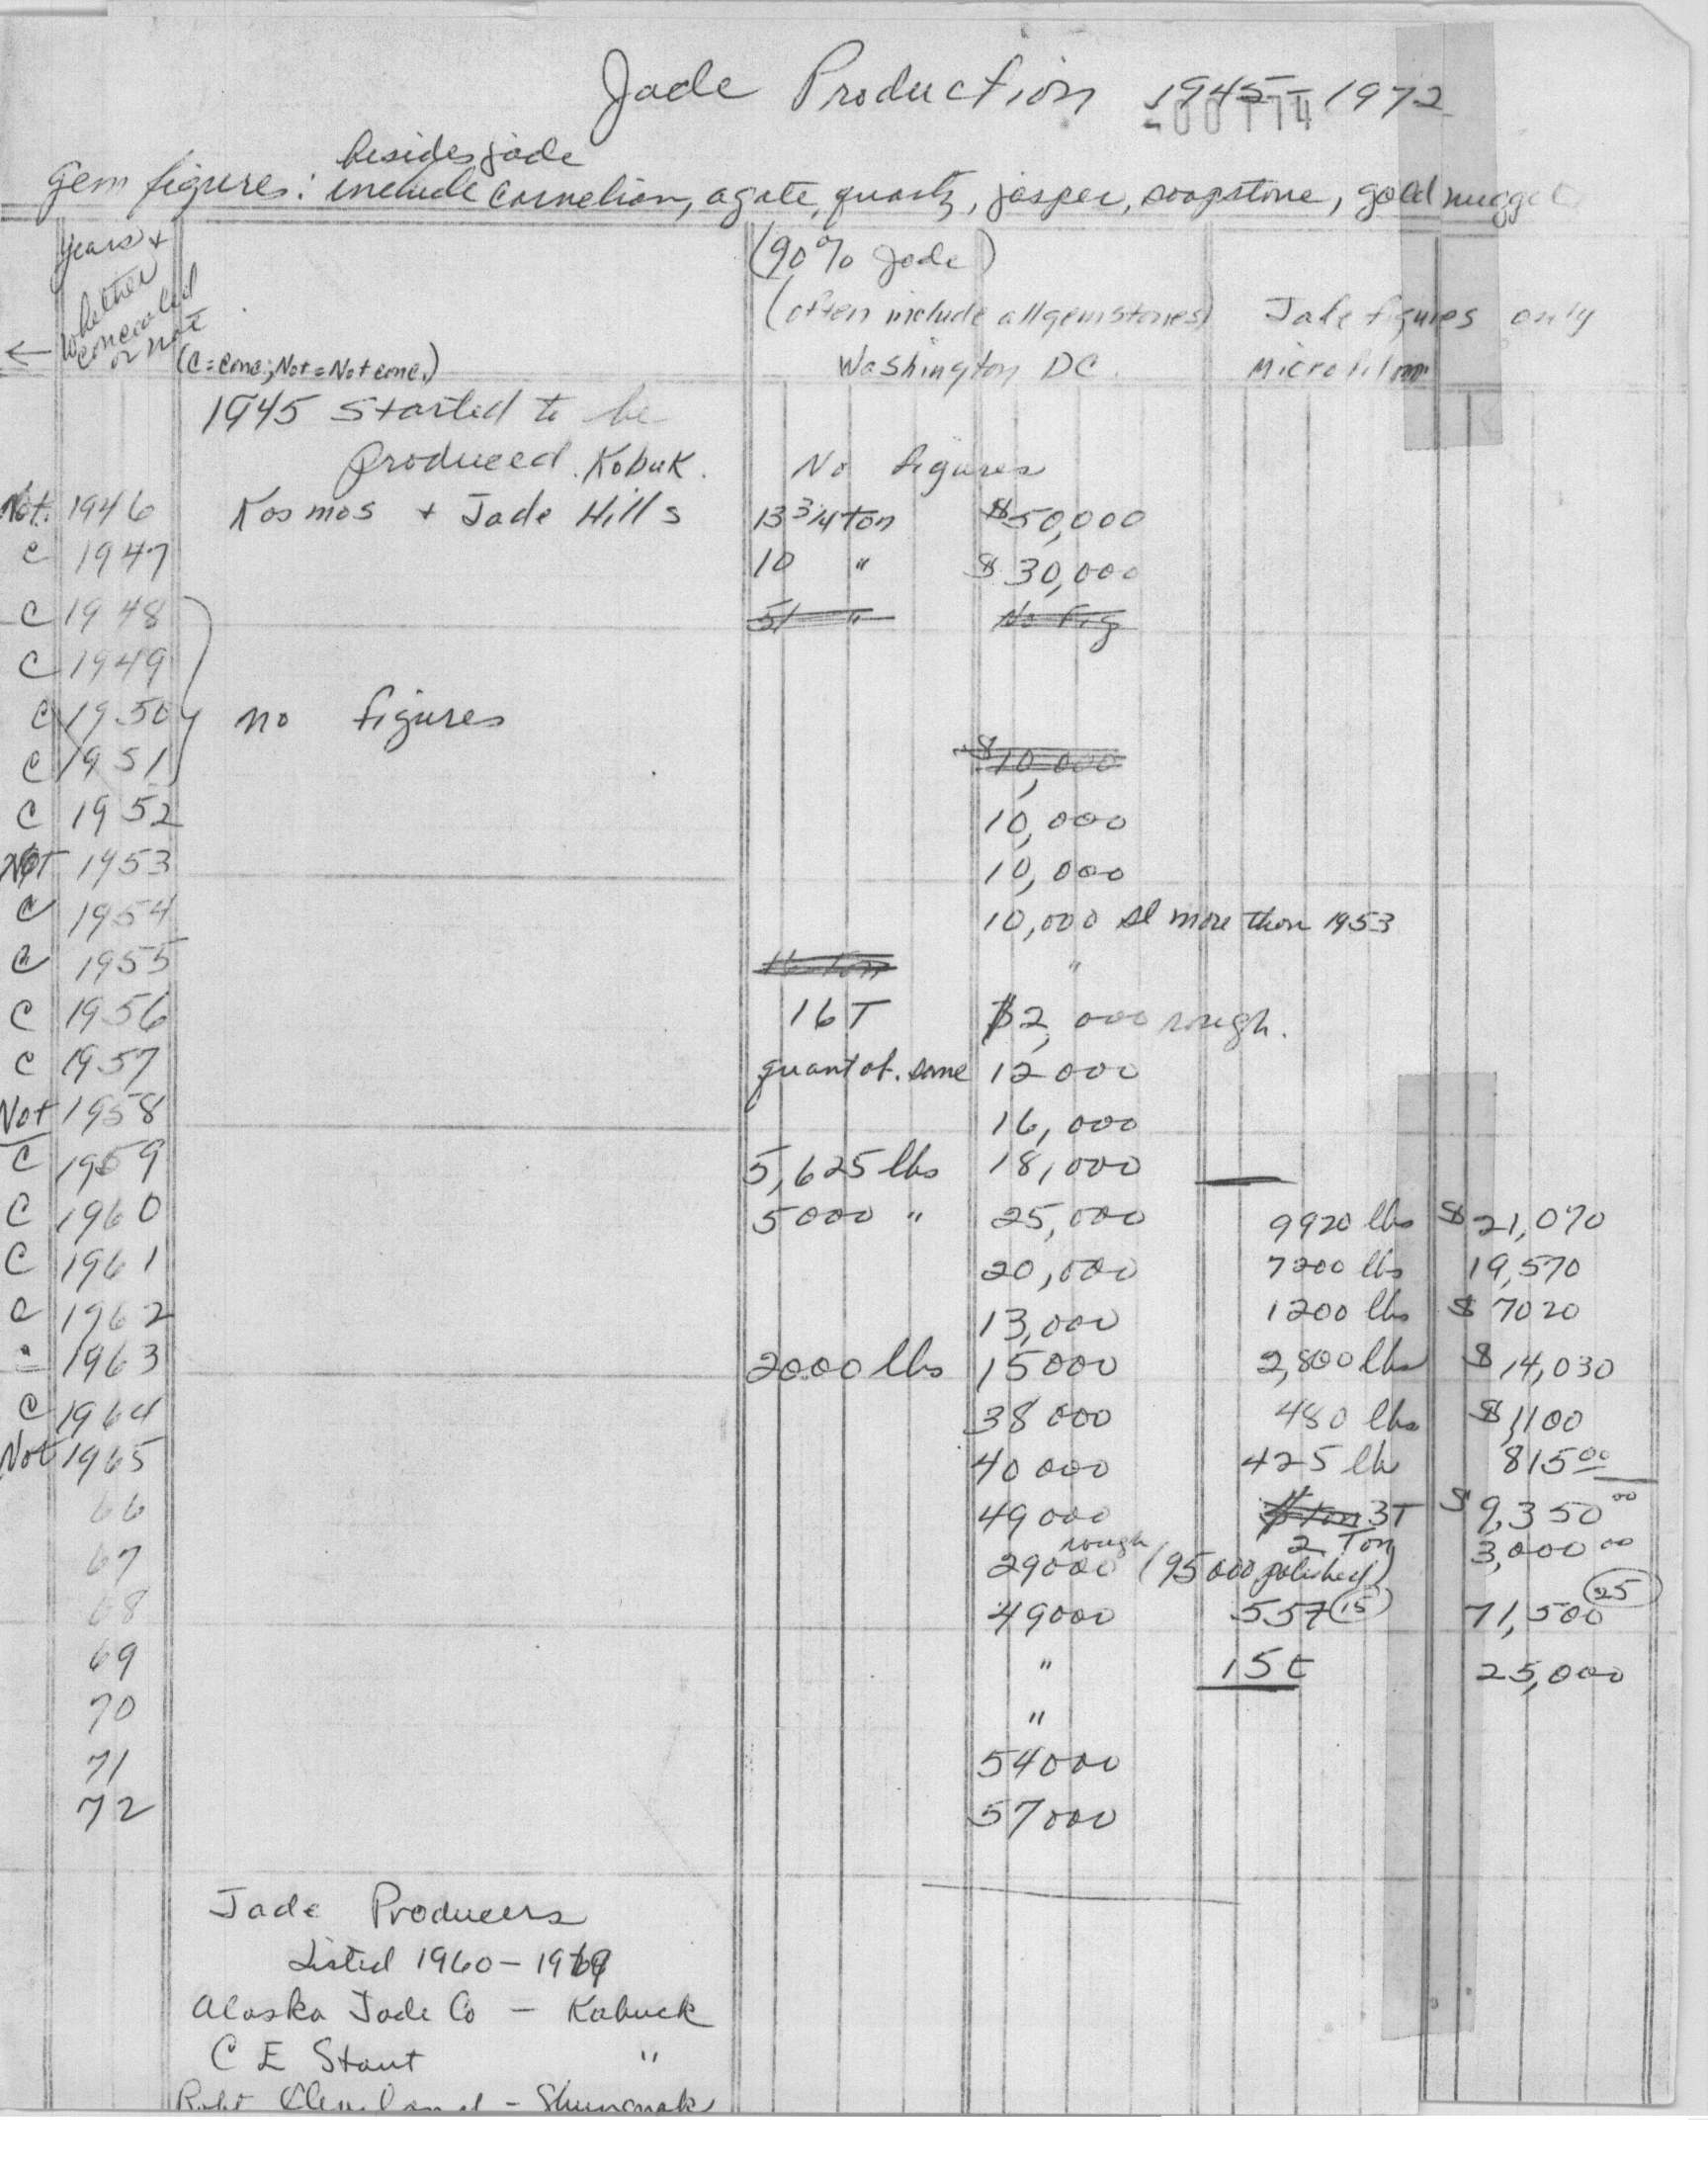 Jade Production 1945-1972
-00174
besides jade
Gem figures: include carnelian, agate, quartz, jasper, soapstone, gold nugget
years +
whether
concealed
or not
←
(C=conc; Not=Not conc.)
(90% Jade)
(often include all gemstones)
Washington DC.
Jade figures only
Microfilm
1945 Started to be
produced. Kobuk. No figures
Not. 1946 Kosmos + Jade Hills 13 3/4 ton $50,000
C 1947 10 " $30,000
C 1948 51 " No Fig
C 1949
C 1950 no figures
C 1951 $10,000
C 1952 10,000
Not 1953 10,000
C 1954 10,000 sl more than 1953
C 1955 "
C 1956 16T $2,000 rough.
C 1957 quant of. same 12000
Not 1958 16,000
C 1959 5,625 lbs 18,000 —
C 1960 5000 " 25,000 9920 lbs $21,070
C 1961 20,000 7200 lbs 19,570
C 1962 13,000 1200 lbs $7020
1963 2000 lbs 15000 2,800 lbs $14,030
C 1964 38000 480 lbs $1,100
Not 1965 40000 425 lb 815.00
66 49000 ton 3T $9,350.00
67 29000 rough (95000 polished) 2 Ton 3,000.00
68 49000 557 (15) 71,500 (25)
69 " 15t 25,000
70 "
71 54000
72 57000
Jade Producers
Listed 1960-1969
Alaska Jade Co - Kobuck
C E Stout "
Robt Cleveland - Shungnak